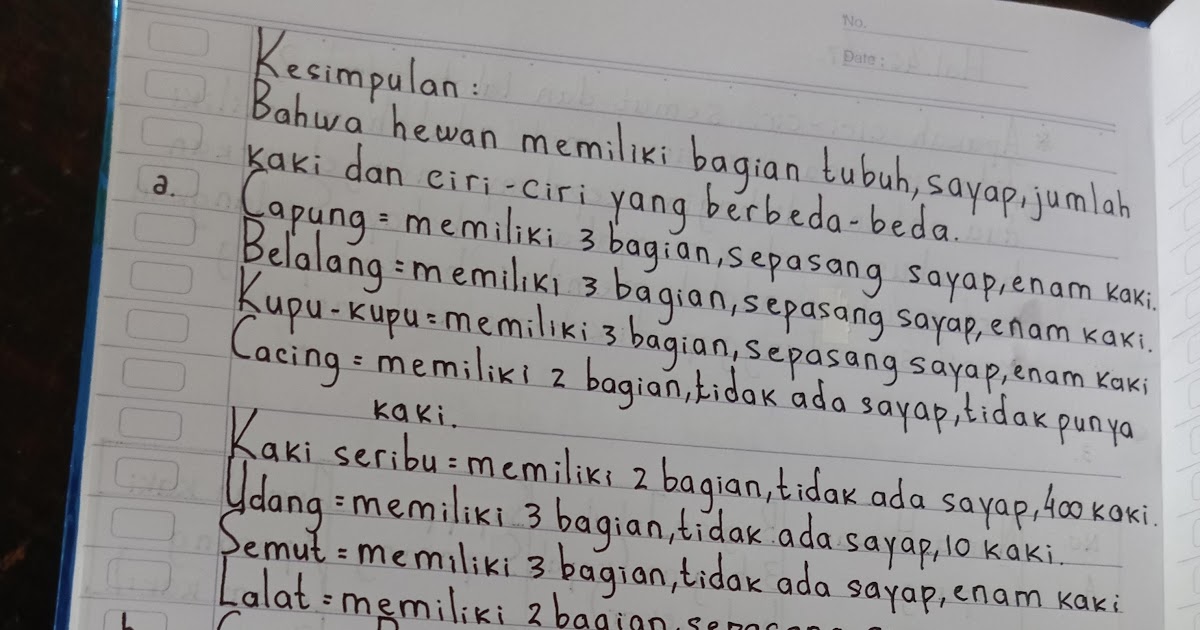 No.
Date :
Kesimpulan :
Bahwa hewan memiliki bagian tubuh, sayap, jumlah
kaki dan ciri-ciri yang berbeda-beda.
a. Capung = memiliki 3 bagian, sepasang sayap, enam kaki.
Belalang = memiliki 3 bagian, sepasang sayap, enam kaki.
Kupu-kupu = memiliki 3 bagian, sepasang sayap, enam kaki
Cacing = memiliki 2 bagian, tidak ada sayap, tidak punya
kaki.
Kaki seribu = memiliki 2 bagian, tidak ada sayap, 400 kaki.
Udang = memiliki 3 bagian, tidak ada sayap, 10 kaki.
Semut = memiliki 3 bagian, tidak ada sayap, enam kaki
Lalat = memiliki 2 bagian,